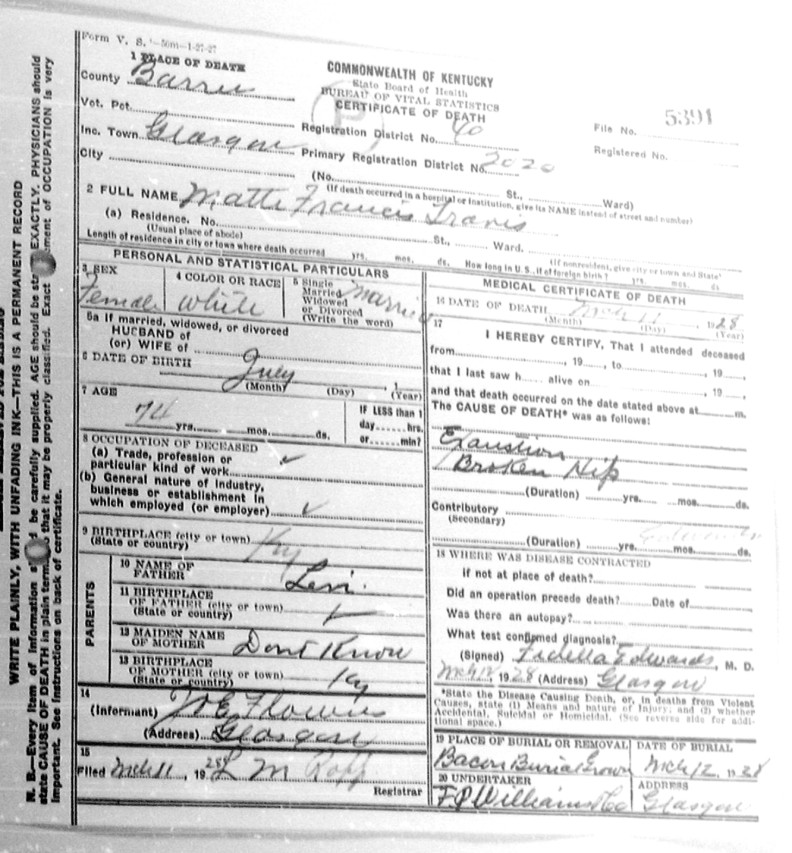 Form V. S. 1-50m-1-27-27
1 PLACE OF DEATH
County Barren
Vot. Pct.
Inc. Town Glasgow
City
COMMONWEALTH OF KENTUCKY
State Board of Health
BUREAU OF VITAL STATISTICS
CERTIFICATE OF DEATH
Registration District No. 40
Primary Registration District No. 2020
(No. St., Ward)
File No. 5391
Registered No.
(If death occurred in a hospital or institution, give its NAME instead of street and number)
2 FULL NAME Matt Francis Travis
(a) Residence. No. St., Ward.
(Usual place of abode) (If nonresident, give city or town and State)
Length of residence in city or town where death occurred yrs. mos. ds. How long in U. S., if of foreign birth? yrs. mos. ds.
PERSONAL AND STATISTICAL PARTICULARS
3 SEX Female
4 COLOR OR RACE White
5 Single Married Widowed or Divorced (Write the word) Married
5a If married, widowed, or divorced
HUSBAND of
(or) WIFE of
6 DATE OF BIRTH July
(Month) (Day) (Year)
7 AGE
74 yrs. mos. ds.
IF LESS than 1
day ...... hrs.
or ...... min?
8 OCCUPATION OF DECEASED
(a) Trade, profession or
particular kind of work ✓
(b) General nature of Industry,
business or establishment in
which employed (or employer) ✓
9 BIRTHPLACE (city or town)
(State or country) Ky
PARENTS
10 NAME OF
FATHER Levi
11 BIRTHPLACE
OF FATHER (city or town)
(State or country) ✓
12 MAIDEN NAME
OF MOTHER Dont Know
13 BIRTHPLACE
OF MOTHER (city or town)
(State or country) Ky
14
(Informant) J E Flowers
(Address) Glasgow
15
Filed Mch 11, 1928 L M
Registrar
MEDICAL CERTIFICATE OF DEATH
16 DATE OF DEATH Mch 11, 1928
(Month) (Day) (Year)
17
I HEREBY CERTIFY, That I attended deceased
from, 19, to, 19
that I last saw h alive on, 19
and that death occurred on the date stated above at m.
The CAUSE OF DEATH* was as follows:
Exaustion
Broken Hip
(Duration) yrs. mos. ds.
Contributory
(Secondary)
(Duration) yrs. mos. ds.
18 WHERE WAS DISEASE CONTRACTED
If not at place of death?
Did an operation precede death? Date of
Was there an autopsy?
What test confirmed diagnosis?
(Signed) Edwards, M. D.
Mch, 1928 (Address) Glasgow
*State the Disease Causing Death, or, in deaths from Violent
Causes, state (1) Means and nature of Injury, and (2) whether
Accidental, Suicidal or Homicidal. (See reverse side for addi-
tional space.)
19 PLACE OF BURIAL OR REMOVAL
Bacon Burial Grown
DATE OF BURIAL
Mch 12, 1928
20 UNDERTAKER
F P Williams & Co
ADDRESS
Glasgow
WRITE PLAINLY, WITH UNFADING INK—THIS IS A PERMANENT RECORD
N. B.—Every item of Information should be carefully supplied. AGE should be stated EXACTLY. PHYSICIANS should
state CAUSE OF DEATH in plain terms so that it may be properly classified. Exact statement of OCCUPATION is very
important. See instructions on back of certificate.